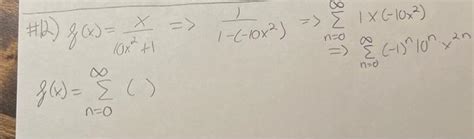 #12) f(x) = x/(10x²+1) => 1/(1-(-10x²)) => ∞∑n=0 1x(-10x²)
=> ∞∑n=0 (-1)ⁿ 10ⁿ x²ⁿ
f(x) = ∞∑n=0 ( )